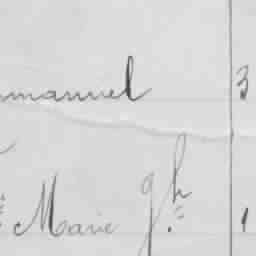 mmanuel 3
Marie gh. 1